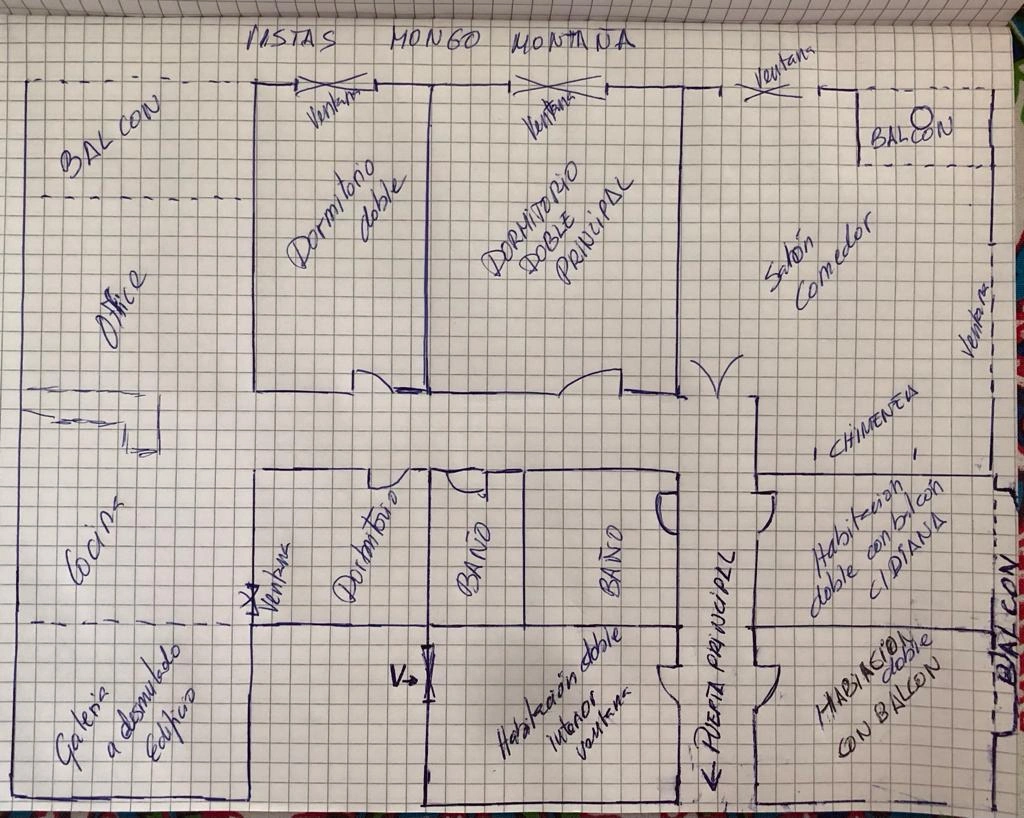 VISTAS MONGO MONTAÑA
BALCON
Ventana
Ventana
Ventana
BALCON
Dormitorio
doble
DORMITORIO
DOBLE
PRINCIPAL
Salón
Comedor
Ventana
Office
CHIMENEA
Cocina
Ventana
Dormitorio
BAÑO
BAÑO
Habitacion
doble con balcon
C/DIANA
BALCON
Galeria
Edificio
V→
Habitación doble
interior
ventana
← PUERTA PRINCIPAL
HABITACION
doble
CON BALCON